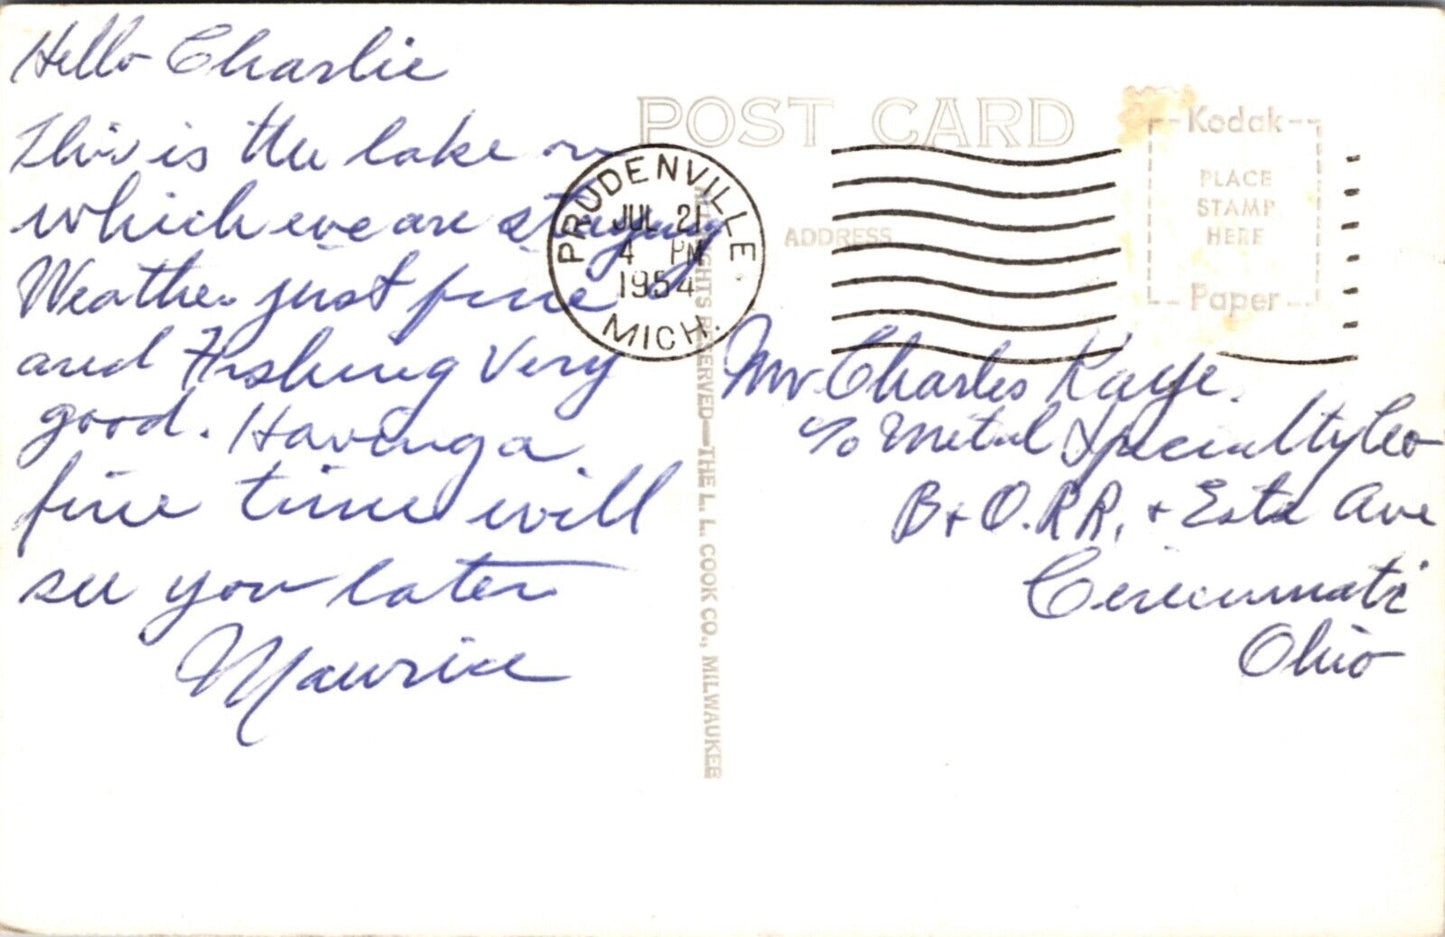 Hello Charlie
This is the lake on
which we are staying
Weather just fine
and Fishing Very
good. Having a
fine time will
see you later
Maurice
POST CARD
ADDRESS
PRUDENVILLE
JUL 21
4 PM
1954
MICH.
Kodak
PLACE
STAMP
HERE
Paper
ALL RIGHTS RESERVED—THE L. L. COOK CO., MILWAUKEE
Mr Charles Kaye.
c/o Metal Specialty Co
B + O. R.R. + Este Ave
Cincinnati
Ohio